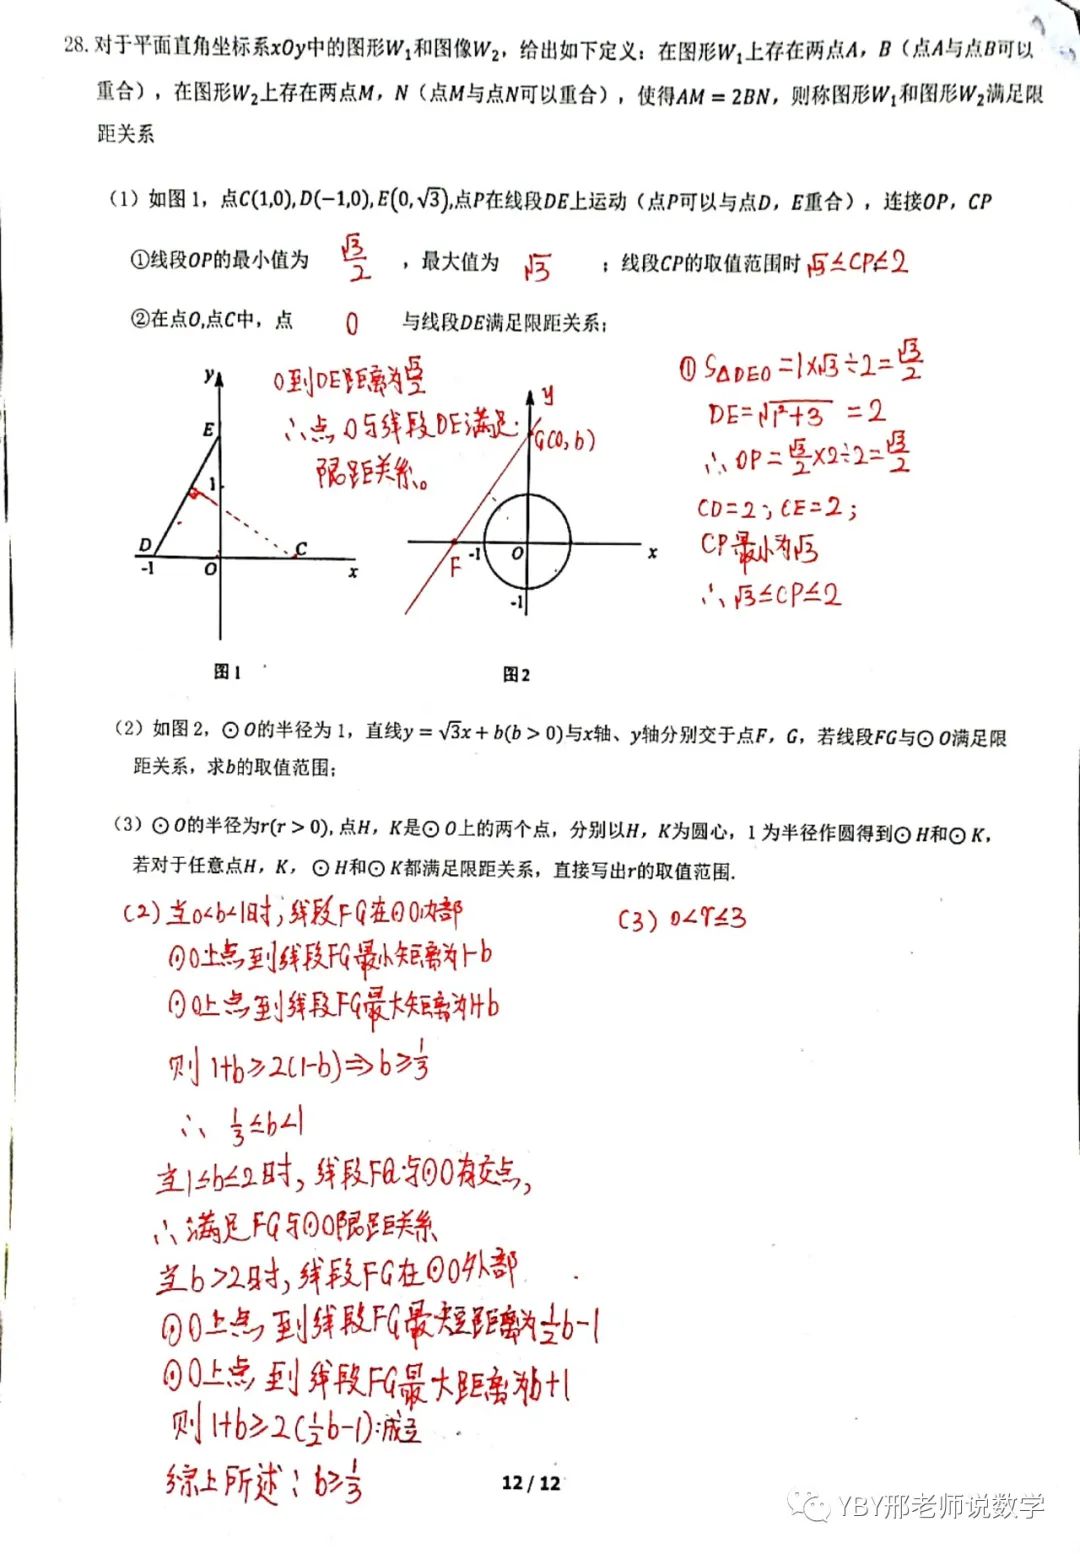 28. 对于平面直角坐标系xOy中的图形W₁和图像W₂，给出如下定义：在图形W₁上存在两点A，B（点A与点B可以
重合），在图形W₂上存在两点M，N（点M与点N可以重合），使得AM = 2BN，则称图形W₁和图形W₂满足限
距关系
（1）如图 1，点C(1,0), D(−1,0), E(0, √3),点P在线段DE上运动（点P可以与点D，E重合），连接OP，CP
①线段OP的最小值为 √3/2 ，最大值为 √3 ；线段CP的取值范围时 √3≤CP≤2
②在点O,点C中，点 O 与线段DE满足限距关系；
O到DE距离为√3/2
∴点O与线段DE满足
限距关系。
① S△DEO =1×√3÷2=√3/2
DE=√1²+3 =2
∴OP=√3/2×2÷2=√3/2
CD=2；CE=2；
CP最小为√3
∴√3≤CP≤2
y
E
1
D
C
-1
O
x
图 1
y
G(0,b)
F
-1
O
x
-1
图 2
（2）如图 2，⊙ O的半径为 1，直线y = √3x + b(b > 0)与x轴、y轴分别交于点F，G，若线段FG与⊙ O满足限
距关系，求b的取值范围；
（3）⊙ O的半径为r(r > 0), 点H，K是⊙ O上的两个点，分别以H，K为圆心，1 为半径作圆得到⊙ H和⊙ K，
若对于任意点H，K，⊙ H和⊙ K都满足限距关系，直接写出r的取值范围.
(2) 当0<b<1时，线段FG在⊙O内部
⊙O上点到线段FG最小距离为1-b
⊙O上点到线段FG最大距离为1+b
则 1+b≥2(1-b)⇒b≥1/3
∴ 1/3≤b<1
当1≤b≤2时，线段FG与⊙O有交点，
∴满足FG与⊙O限距关系
当b>2时，线段FG在⊙O外部
⊙O上点到线段FG最短距离为1/2b-1
⊙O上点到线段FG最大距离为b+1
则 1+b≥2(1/2b-1)成立
综上所述：b≥1/3
(3) 0<r≤3
12 / 12
YBY邢老师说数学